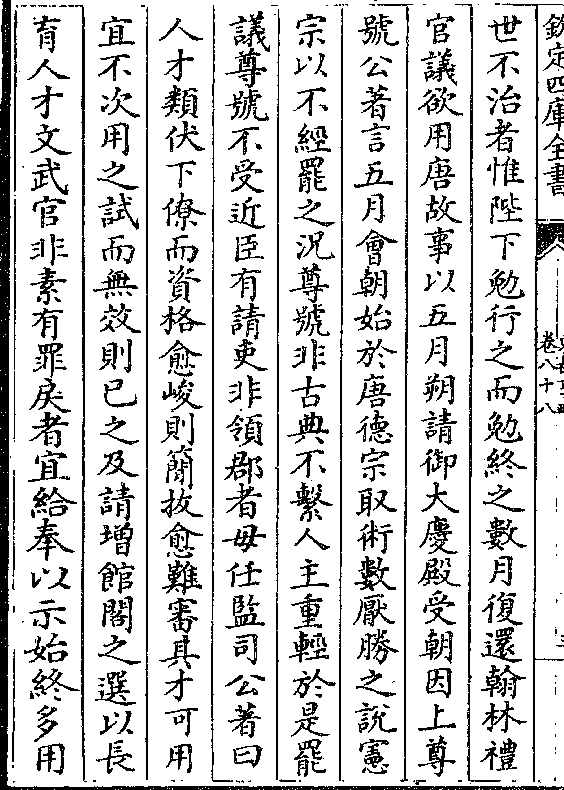 欽定四庫全書
卷八十八
世不治者惟陛下勉行之而勉終之數月復還翰林禮
官議欲用唐故事以五月朔請御大慶殿受朝因上尊
號公著言五月會朝始於唐德宗取術數厭勝之說憲
宗以不經罷之況尊號非古典不繫人主重輕於是罷
議尊號不受近臣有請吏非領郡者毋任監司公著曰
人才類伏下僚而資格愈峻則簡拔愈難審其才可用
宜不次用之試而無效則已之及請增館閣之選以長
育人才文武官非素有罪戾者宜給奉以示始終多用